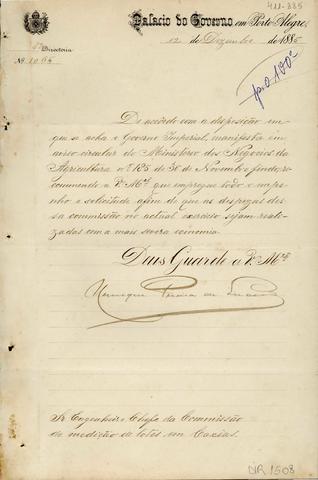 411-335
Palacio do Governo em Porto Alegre,
12 de Dezembro de 1885
Directoria
Nº 1064
De accôrdo com a disposição em
que se acha o Governo Imperial, manifesta em
aviso circular do Ministerio dos Negocios da
Agricultura nº 125 de 30 de Novembro findo, re-
commendo a Vª Mcê que empregue todo o empe-
nho e solicitude afim de que as despezas des-
sa commissão no actual exercicio sejam reali-
zadas com a mais severa economia.
Deus Guarde a Vª Mcê
Henrique Pereira de Lucena
Sr Engenheiro Chefe da Commissão
de medição de lotes em Caxias.
DIR 1508